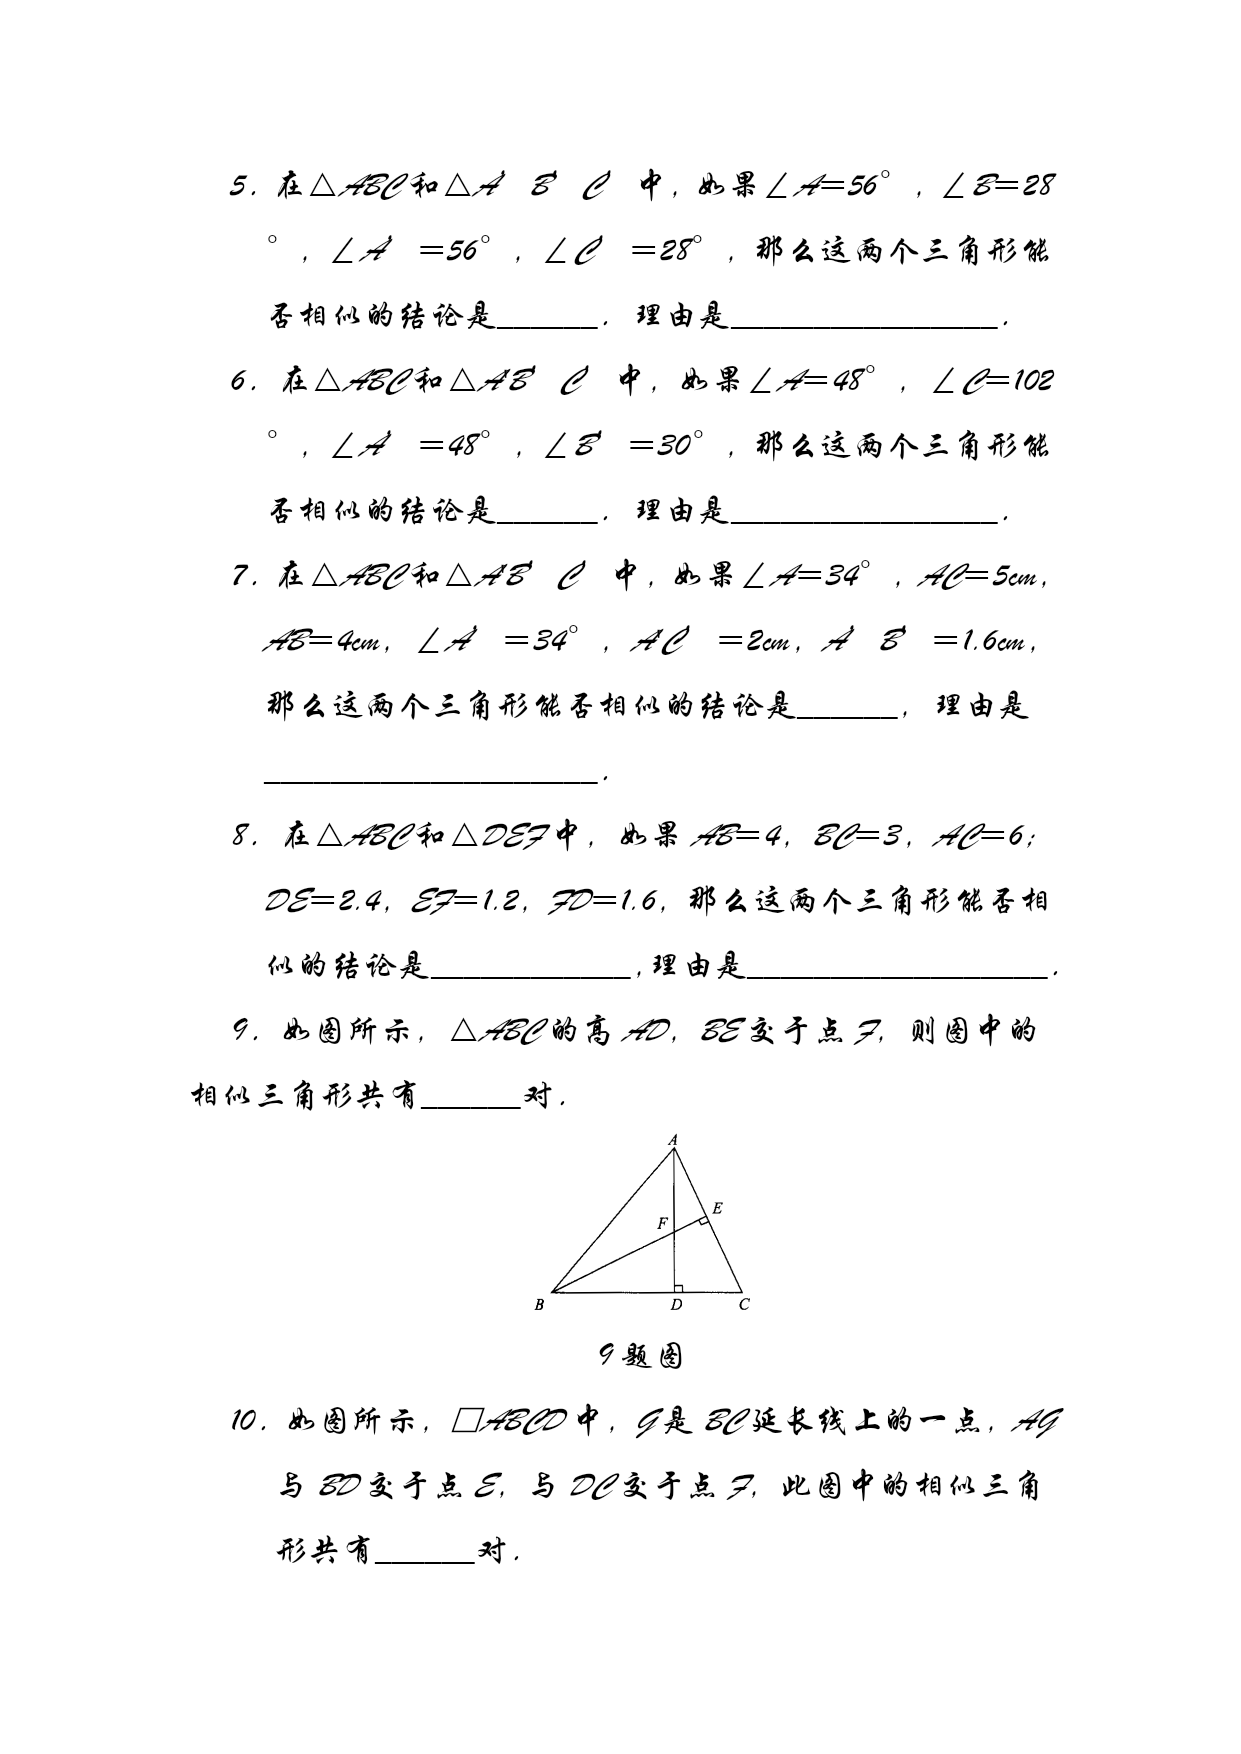 5. 在△ABC和△A′ B′ C′ 中，如果∠A=56°，∠B=28
°，∠A′ =56°，∠C′ =28°，那么这两个三角形能
否相似的结论是______．理由是________________．
6. 在△ABC和△A′B′ C′ 中，如果∠A=48°，∠C=102
°，∠A′ =48°，∠B′ =30°，那么这两个三角形能
否相似的结论是______．理由是________________．
7. 在△ABC和△A′B′ C′ 中，如果∠A=34°，AC=5cm，
AB=4cm，∠A′ =34°，A′C′ =2cm，A′ B′ =1.6cm，
那么这两个三角形能否相似的结论是______，理由是
____________________．
8. 在△ABC和△DEF中，如果AB=4，BC=3，AC=6；
DE=2.4，EF=1.2，FD=1.6，那么这两个三角形能否相
似的结论是____________,理由是__________________．
9. 如图所示，△ABC的高AD，BE交于点F，则图中的
相似三角形共有______对．
A
E
F
B
D
C
9题图
10. 如图所示，□ABCD中，G是BC延长线上的一点，AG
与BD交于点E，与DC交于点F，此图中的相似三角
形共有______对．